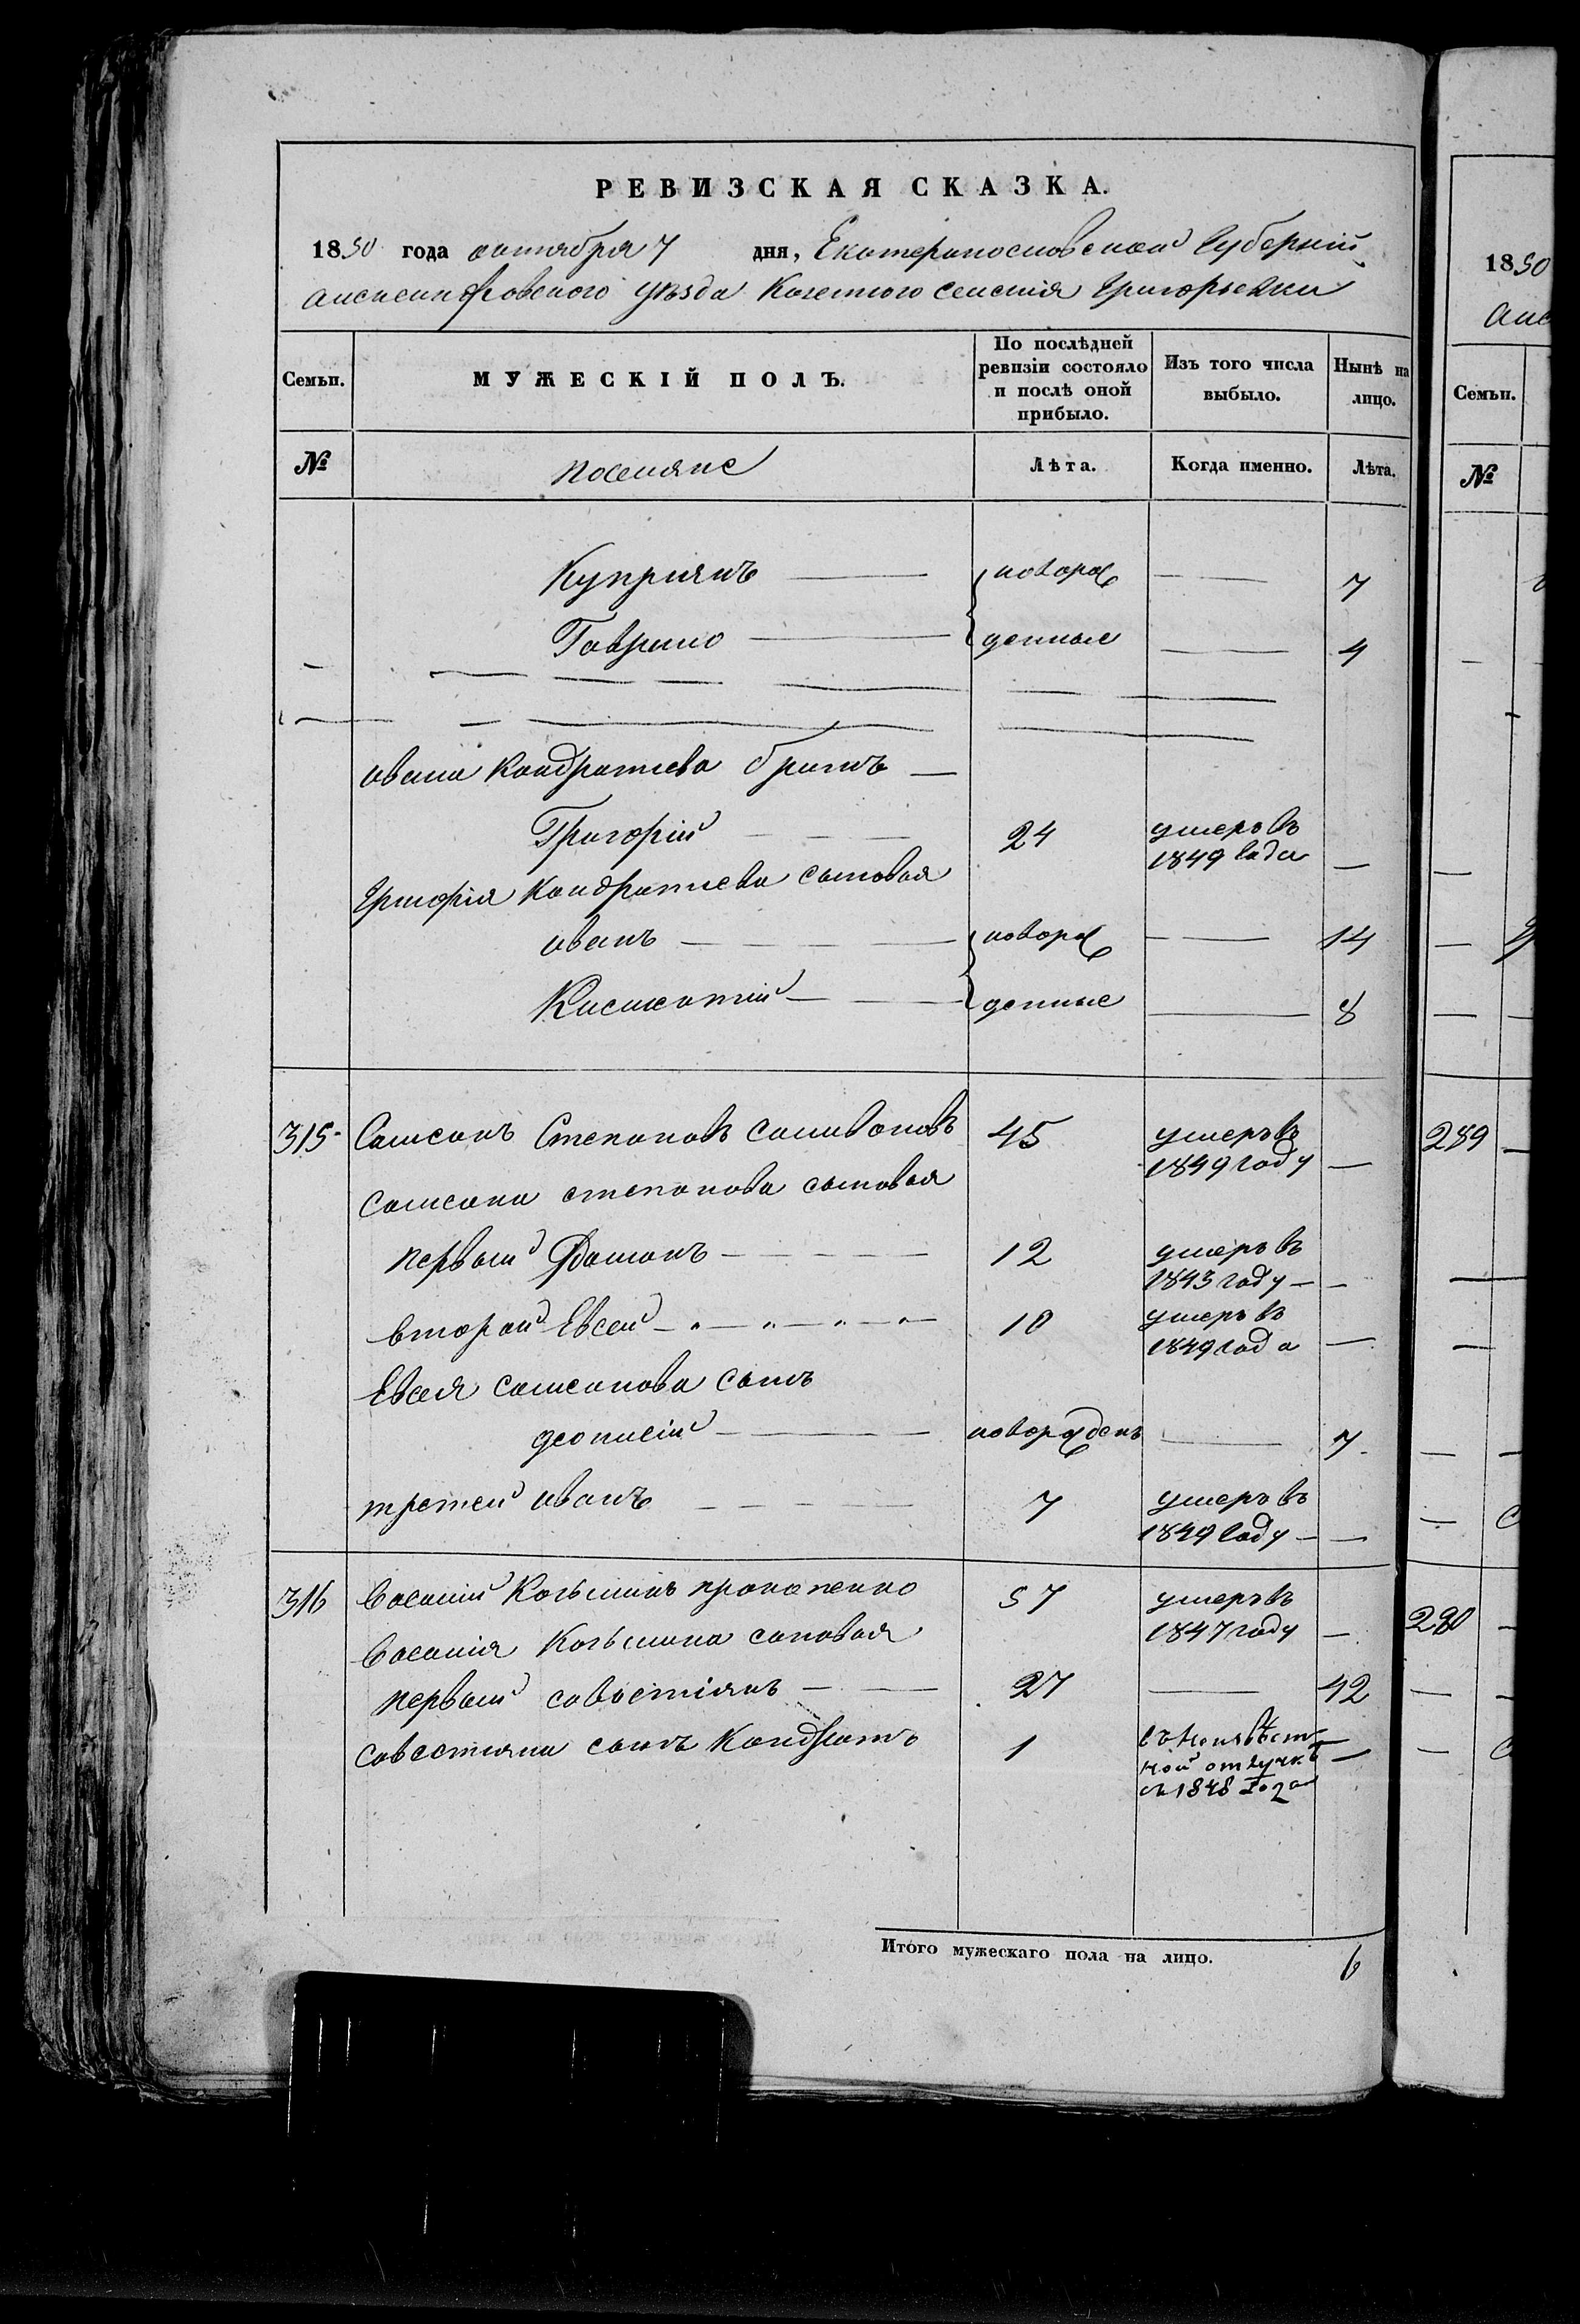 РЕВИЗСКАЯ СКАЗКА.
1850 года октября 7 дня, Екатеринославской Губернiи
Александровского уѣзда Казенного селения Григорьевки
Семьи. МУЖЕСКІЙ ПОЛЪ. По послѣдней ревизіи состояло и послѣ оной прибыло. Изъ того числа выбыло. Нынѣ на лицо.
№ поселяне Лѣта. Когда именно. Лѣта.
Куприянъ новорож 7
Гаврило денные 4
ивана Кондратиева братъ
Григорiй 24 умеръ въ 1849 года
Григорiя Кондратиева сыновья
иванъ новорож 14
денные 8
315 Самсонъ Степановъ 45 умеръ въ 1849 году
Самсона степанова сыновья
первый 12 умеръ въ 1843 году
второй Евсей 10 умеръ въ 1849 года
Евсея самсонова сынъ
дeонисiй новорожденъ 7
третей иванъ 7 умеръ въ 1849 году
316 Василий Козьминъ прокопенко 57 умеръ въ 1847 году
Василия Козьмина сыновья
первый савостiянъ 27 42
Савостияна сынъ Кондратъ 1 въ неизвѣст
ной отлучкѣ
съ 1848 года
Итого мужескаго пола на лицо. 6
1850
Семьи.
№
289
290